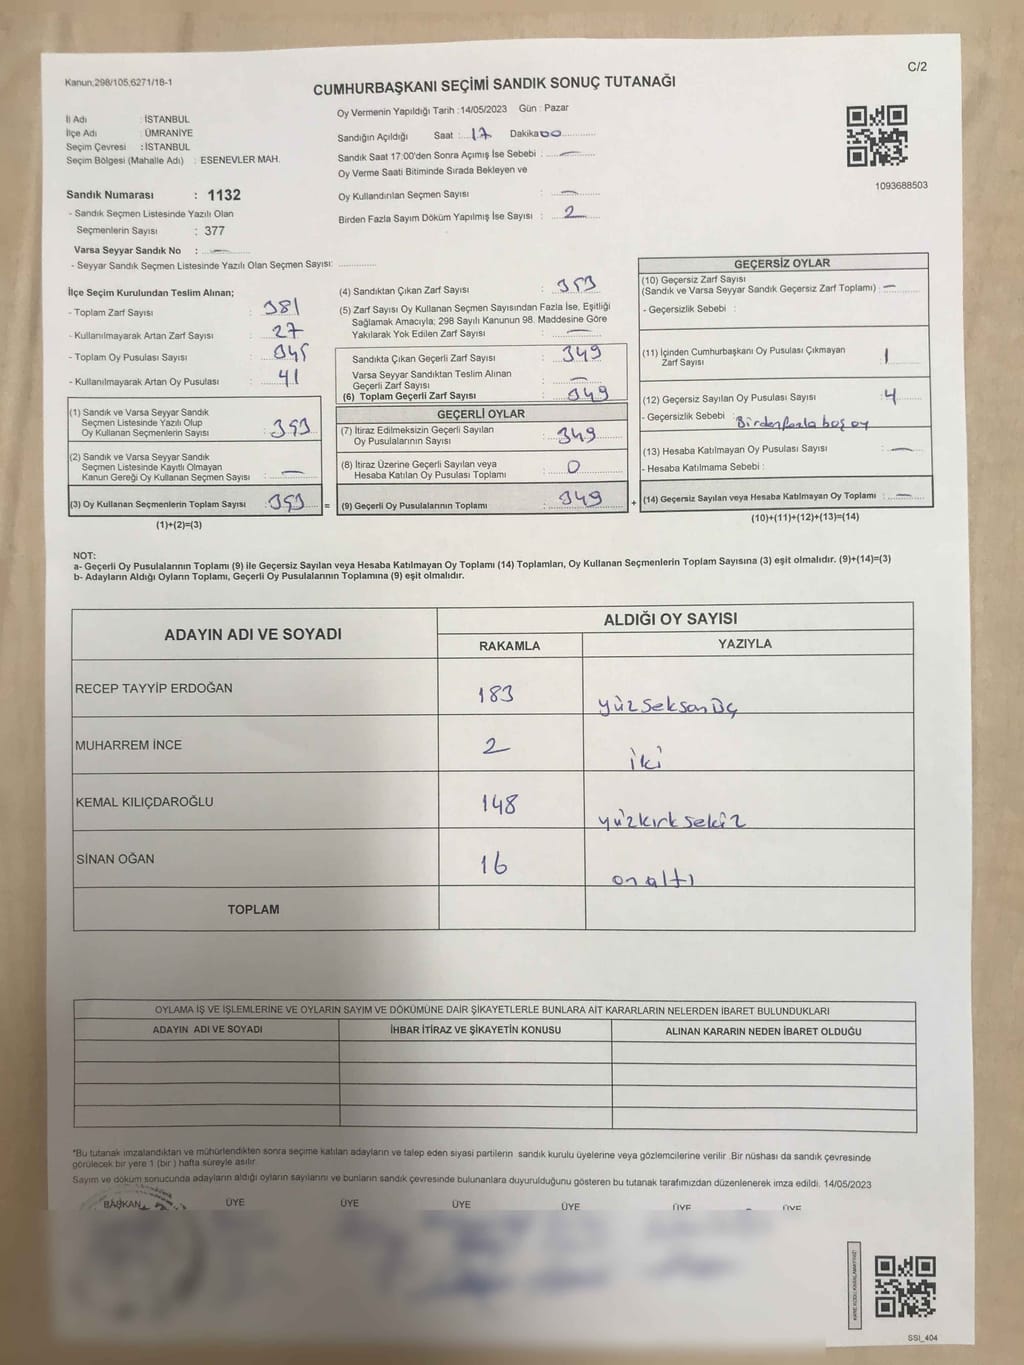 C/2
Kanun:298/105,6271/18-1
CUMHURBAŞKANI SEÇİMİ SANDIK SONUÇ TUTANAĞI
Oy Vermenin Yapıldığı Tarih :14/05/2023 Gün : Pazar
İl Adı : İSTANBUL
İlçe Adı : ÜMRANİYE
Seçim Çevresi : İSTANBUL
Seçim Bölgesi (Mahalle Adı) : ESENEVLER MAH.
Sandığın Açıldığı Saat : 17 Dakika 00
Sandık Saat 17:00'den Sonra Açımış İse Sebebi : —
Oy Verme Saati Bitiminde Sırada Bekleyen ve
Oy Kullandırılan Seçmen Sayısı : —
Birden Fazla Sayım Döküm Yapılmış İse Sayısı : 2
1093688503
Sandık Numarası : 1132
- Sandık Seçmen Listesinde Yazılı Olan
Seçmenlerin Sayısı : 377
Varsa Seyyar Sandık No : —
- Seyyar Sandık Seçmen Listesinde Yazılı Olan Seçmen Sayısı:
İlçe Seçim Kurulundan Teslim Alınan;
- Toplam Zarf Sayısı : 381
- Kullanılmayarak Artan Zarf Sayısı : 27
- Toplam Oy Pusulası Sayısı :
- Kullanılmayarak Artan Oy Pusulası : 41
(1) Sandık ve Varsa Seyyar Sandık
Seçmen Listesinde Yazılı Olup
Oy Kullanan Seçmenlerin Sayısı : 353
(2) Sandık ve Varsa Seyyar Sandık
Seçmen Listesinde Kayıtlı Olmayan
Kanun Gereği Oy Kullanan Seçmen Sayısı : —
(3) Oy Kullanan Seçmenlerin Toplam Sayısı : 353
(1)+(2)=(3)
(4) Sandıktan Çıkan Zarf Sayısı : 353
(5) Zarf Sayısı Oy Kullanan Seçmen Sayısından Fazla İse, Eşitliği
Sağlamak Amacıyla; 298 Sayılı Kanunun 98. Maddesine Göre
Yakılarak Yok Edilen Zarf Sayısı : —
Sandıkta Çıkan Geçerli Zarf Sayısı : 349
Varsa Seyyar Sandıktan Teslim Alınan
Geçerli Zarf Sayısı : —
(6) Toplam Geçerli Zarf Sayısı : 349
GEÇERLİ OYLAR
(7) İtiraz Edilmeksizin Geçerli Sayılan
Oy Pusulalarının Sayısı : 349
(8) İtiraz Üzerine Geçerli Sayılan veya
Hesaba Katılan Oy Pusulası Toplamı : 0
(9) Geçerli Oy Pusulalarının Toplamı : 349
GEÇERSİZ OYLAR
(10) Geçersiz Zarf Sayısı
(Sandık ve Varsa Seyyar Sandık Geçersiz Zarf Toplamı) : —
- Geçersizlik Sebebi :
(11) İçinden Cumhurbaşkanı Oy Pusulası Çıkmayan
Zarf Sayısı : 1
(12) Geçersiz Sayılan Oy Pusulası Sayısı : 4
- Geçersizlik Sebebi : Birden fazla boş oy
(13) Hesaba Katılmayan Oy Pusulası Sayısı : —
- Hesaba Katılmama Sebebi :
(14) Geçersiz Sayılan veya Hesaba Katılmayan Oy Toplamı : —
(10)+(11)+(12)+(13)=(14)
NOT:
a- Geçerli Oy Pusulalarının Toplamı (9) ile Geçersiz Sayılan veya Hesaba Katılmayan Oy Toplamı (14) Toplamları, Oy Kullanan Seçmenlerin Toplam Sayısına (3) eşit olmalıdır. (9)+(14)=(3)
b- Adayların Aldığı Oyların Toplamı, Geçerli Oy Pusulalarının Toplamına (9) eşit olmalıdır.
ADAYIN ADI VE SOYADI
ALDIĞI OY SAYISI
RAKAMLA YAZIYLA
RECEP TAYYİP ERDOĞAN 183 yüzseksanÜç
MUHARREM İNCE 2 iki
KEMAL KILIÇDAROĞLU 148 yüzkırksekiz
SİNAN OĞAN 16 onaltı
TOPLAM
OYLAMA İŞ VE İŞLEMLERİNE VE OYLARIN SAYIM VE DÖKÜMÜNE DAİR ŞİKAYETLERLE BUNLARA AİT KARARLARIN NELERDEN İBARET BULUNDUKLARI
ADAYIN ADI VE SOYADI İHBAR İTİRAZ VE ŞİKAYETİN KONUSU ALINAN KARARIN NEDEN İBARET OLDUĞU
*Bu tutanak imzalandıktan ve mühürlendikten sonra seçime katılan adayların ve talep eden siyasi partilerin sandık kurulu üyelerine veya gözlemcilerine verilir .Bir nüshası da sandık çevresinde
görülecek bir yere 1 (bir ) hafta süreyle asılır.
Sayım ve döküm sonucunda adayların aldığı oyların sayılarını ve bunların sandık çevresinde bulunanlara duyurulduğunu gösteren bu tutanak tarafımızdan düzenlenerek imza edildi. 14/05/2023
BAŞKAN ÜYE ÜYE ÜYE ÜYE ÜYE ÜYE
SSI_404